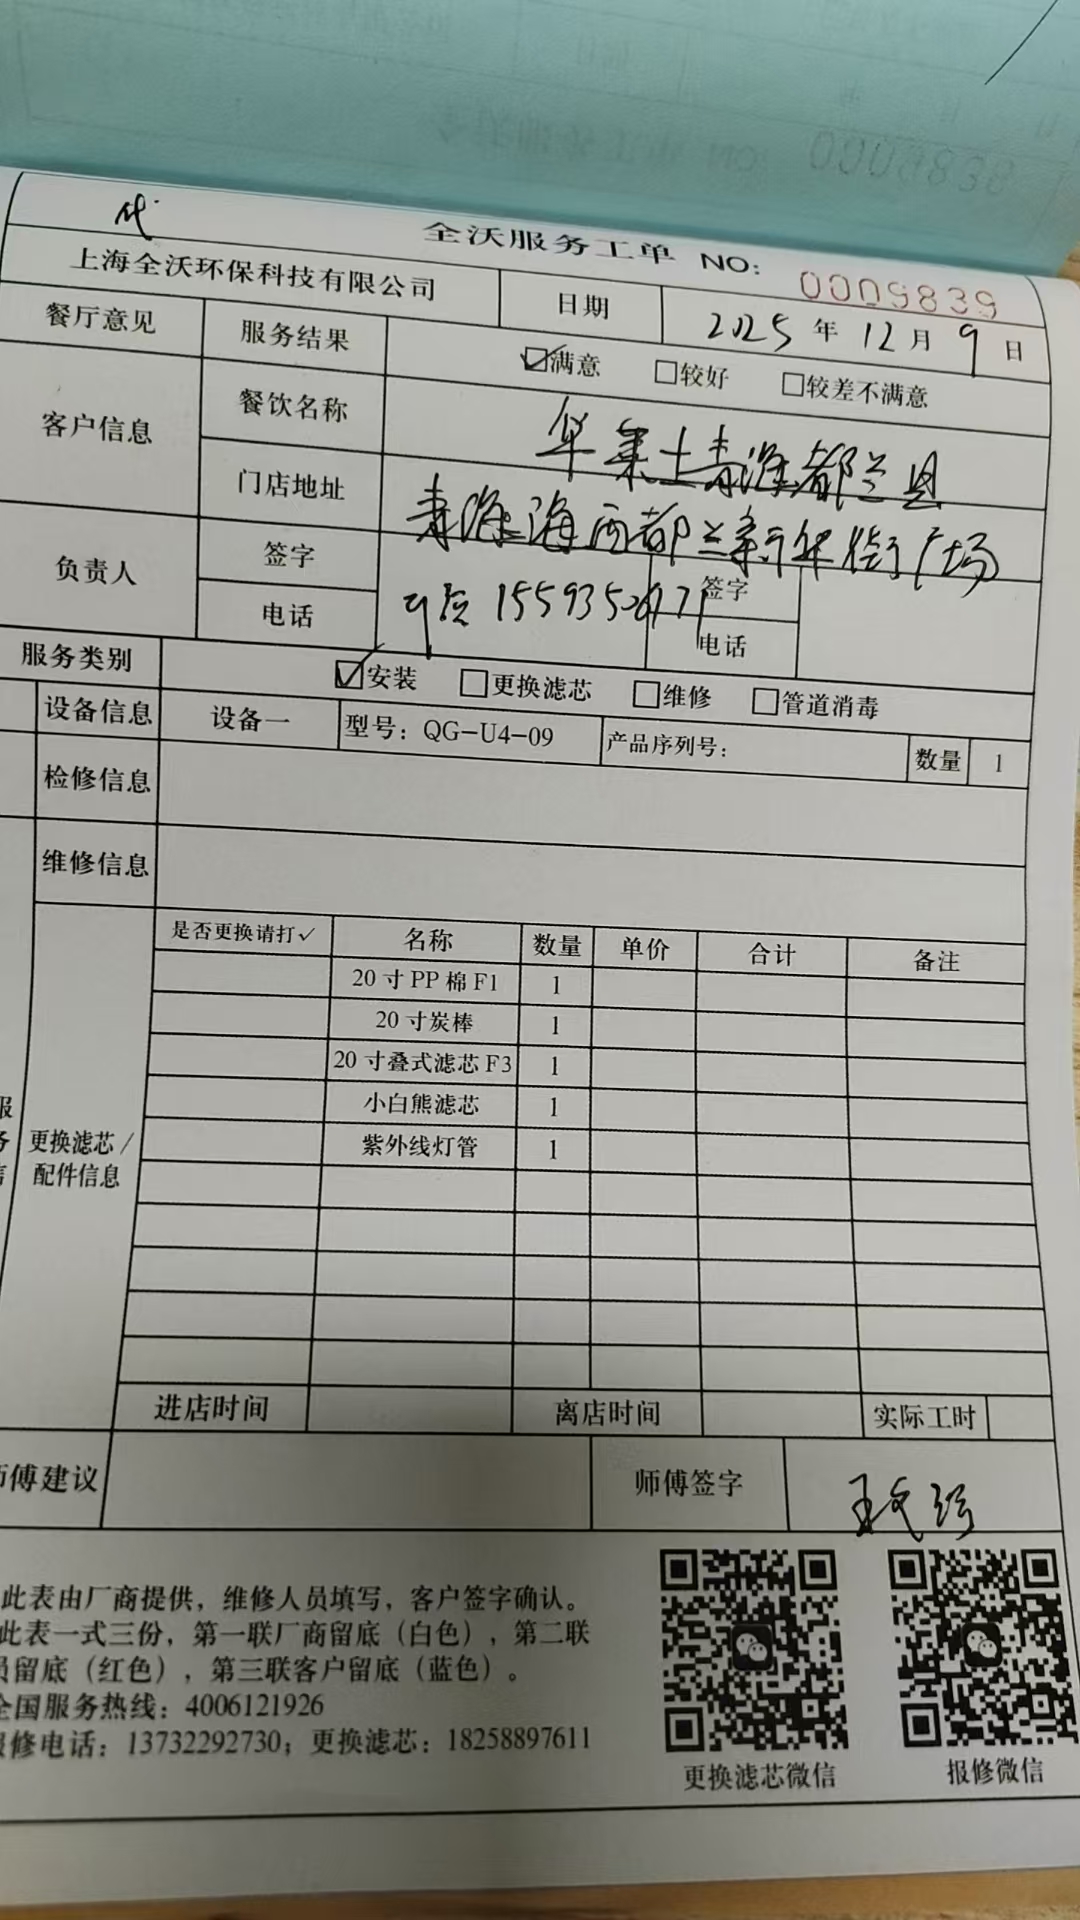 代
全沃服务工单 NO: 0009839
上海全沃环保科技有限公司 日期 2025年12月9日
餐厅意见 服务结果 ☑满意 □较好 □较差不满意
客户信息 餐饮名称 华莱士青海都兰县
门店地址 青海海西都兰新华街广场
负责人 签字 签字
电话 155935 电话
服务类别 ☑安装 □更换滤芯 □维修 □管道消毒
设备信息 设备一 型号：QG-U4-09 产品序列号： 数量 1
检修信息
维修信息
是否更换请打✓ 名称 数量 单价 合计 备注
20寸PP棉F1 1
20寸炭棒 1
20寸叠式滤芯F3 1
小白熊滤芯 1
紫外线灯管 1
更换滤芯/
配件信息
进店时间 离店时间 实际工时
师傅建议 师傅签字 王
此表由厂商提供，维修人员填写，客户签字确认。
此表一式三份，第一联厂商留底（白色），第二联
员留底（红色），第三联客户留底（蓝色）。
全国服务热线：4006121926
报修电话：13732292730；更换滤芯：18258897611
更换滤芯微信 报修微信